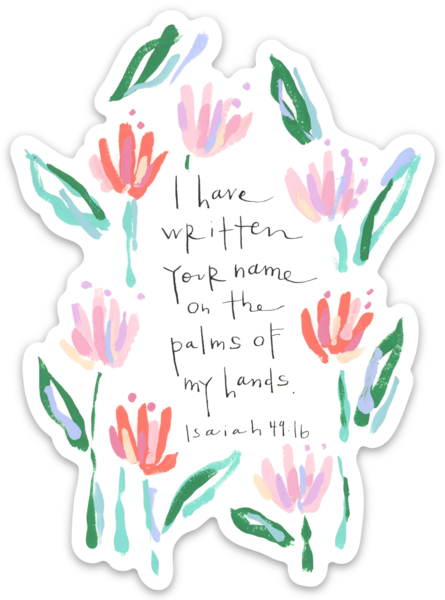 I have
written
your name
on the
palms of
my hands.
Isaiah 49:16